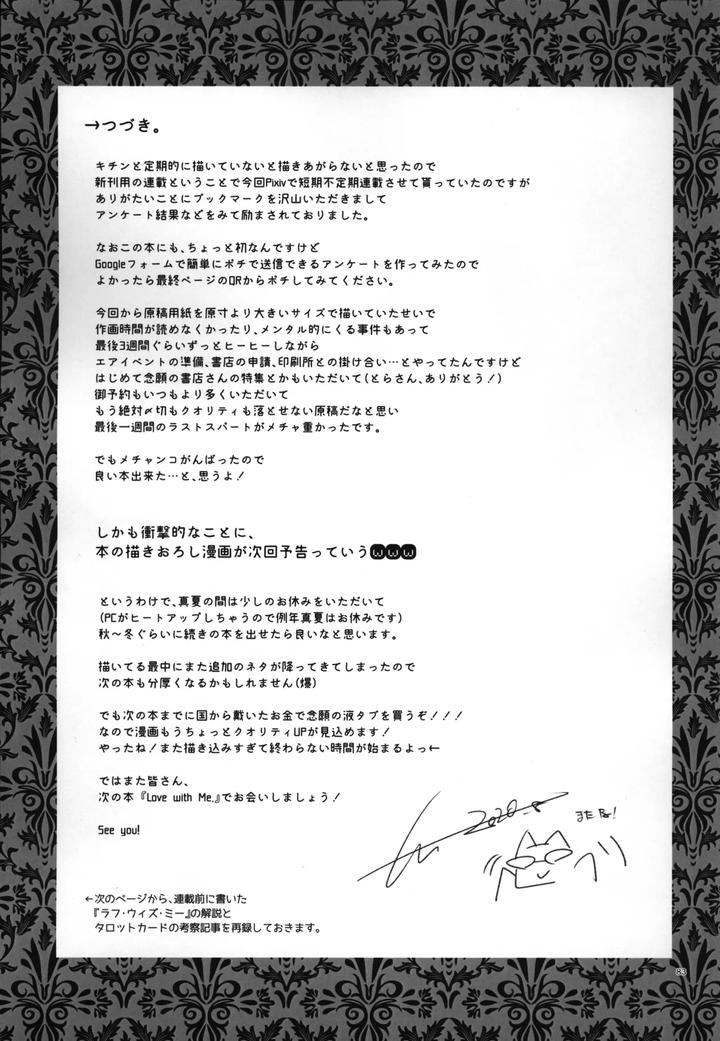 →つづき。
キチンと定期的に描いていないと描きあがらないと思ったので
新刊用の連載ということで今回Pixivで短期不定期連載させて貰っていたのですが
ありがたいことにブックマークを沢山いただきまして
アンケート結果などをみて励まされておりました。
なおこの本にも、ちょっと初なんですけど
Googleフォームで簡単にポチで送信できるアンケートを作ってみたので
よかったら最終ページのQRからポチしてみてください。
今回から原稿用紙を原寸より大きいサイズで描いていたせいで
作画時間が読めなくかったり、メンタル的にくる事件もあって
最後3週間ぐらいずっとヒーヒーしながら
エアイベントの準備、書店の申請、印刷所との掛け合い…とやってたんですけど
はじめて念願の書店さんの特集とかもいただいて(とらさん、ありがとう！)
御予約もいつもより多くいただいて
もう絶対〆切もクオリティも落とせない原稿だなと思い
最後一週間のラストスパートがメチャ重かったです。
でもメチャンコがんばったので
良い本出来た…と、思うよ！
しかも衝撃的なことに、
本の描きおろし漫画が次回予告っていうwww
というわけで、真夏の間は少しのお休みをいただいて
(PCがヒートアップしちゃうので例年真夏はお休みです)
秋～冬ぐらいに続きの本を出せたら良いなと思います。
描いてる最中にまた追加のネタが降ってきてしまったので
次の本も分厚くなるかもしれません(爆)
でも次の本までに国から戴いたお金で念願の液タブを買うぞ！！！
なので漫画もうちょっとクオリティUPが見込めます！
やったね！また描き込みすぎて終わらない時間が始まるよっ←
ではまた皆さん、
次の本『Love with Me.』でお会いしましょう！
See you!
2020.8
またね！
←次のページから、連載前に書いた
『ラフ・ウィズ・ミー』の解説と
タロットカードの考察記事を再録しておきます。
83